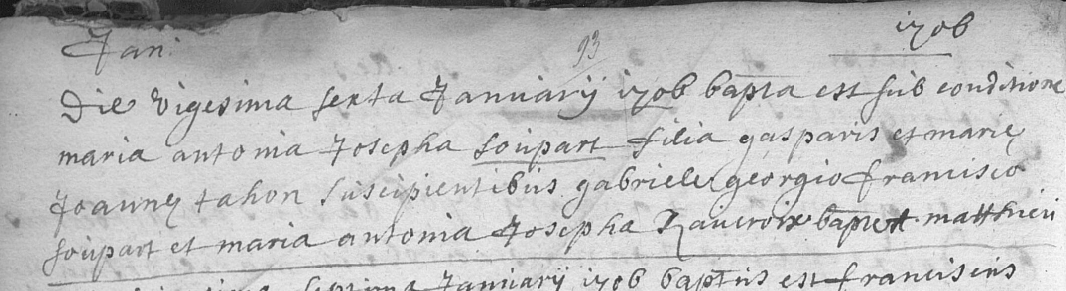 Jan:
93
1706
Die vigesima sexta Januarij 1706 bapta est sub conditione
maria antonia Josepha soupart filia gasparis et marie
Joanne tahon suscipientibus gabriele georgio francisco
soupart et maria antonia Josepha bapt matthieu
septima Januarij 1706 baptus est franciscus